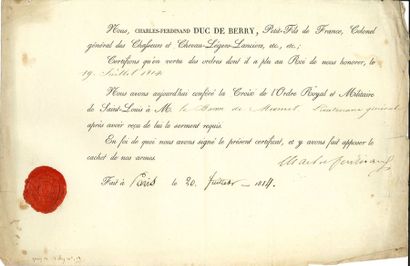 Nous, CHARLES-FERDINAND DUC DE BERRY, Petit-Fils de France, Colonel
général des Chasseurs et Chevau-Légers-Lanciers, etc., etc.;
Certifions qu'en vertu des ordres dont il a plu au Roi de nous honorer, le
19 Juillet 1814
Nous avons aujourd'hui conféré la Croix de l'Ordre Royal et Militaire
de Saint-Louis à M. le Baron de Lieutenant général
après avoir reçu de lui le serment requis.
En foi de quoi nous avons signé le présent certificat, et y avons fait apposer le
cachet de nos armes.
Charles ferdinand
Fait à Paris le 20 Juillet 1814.